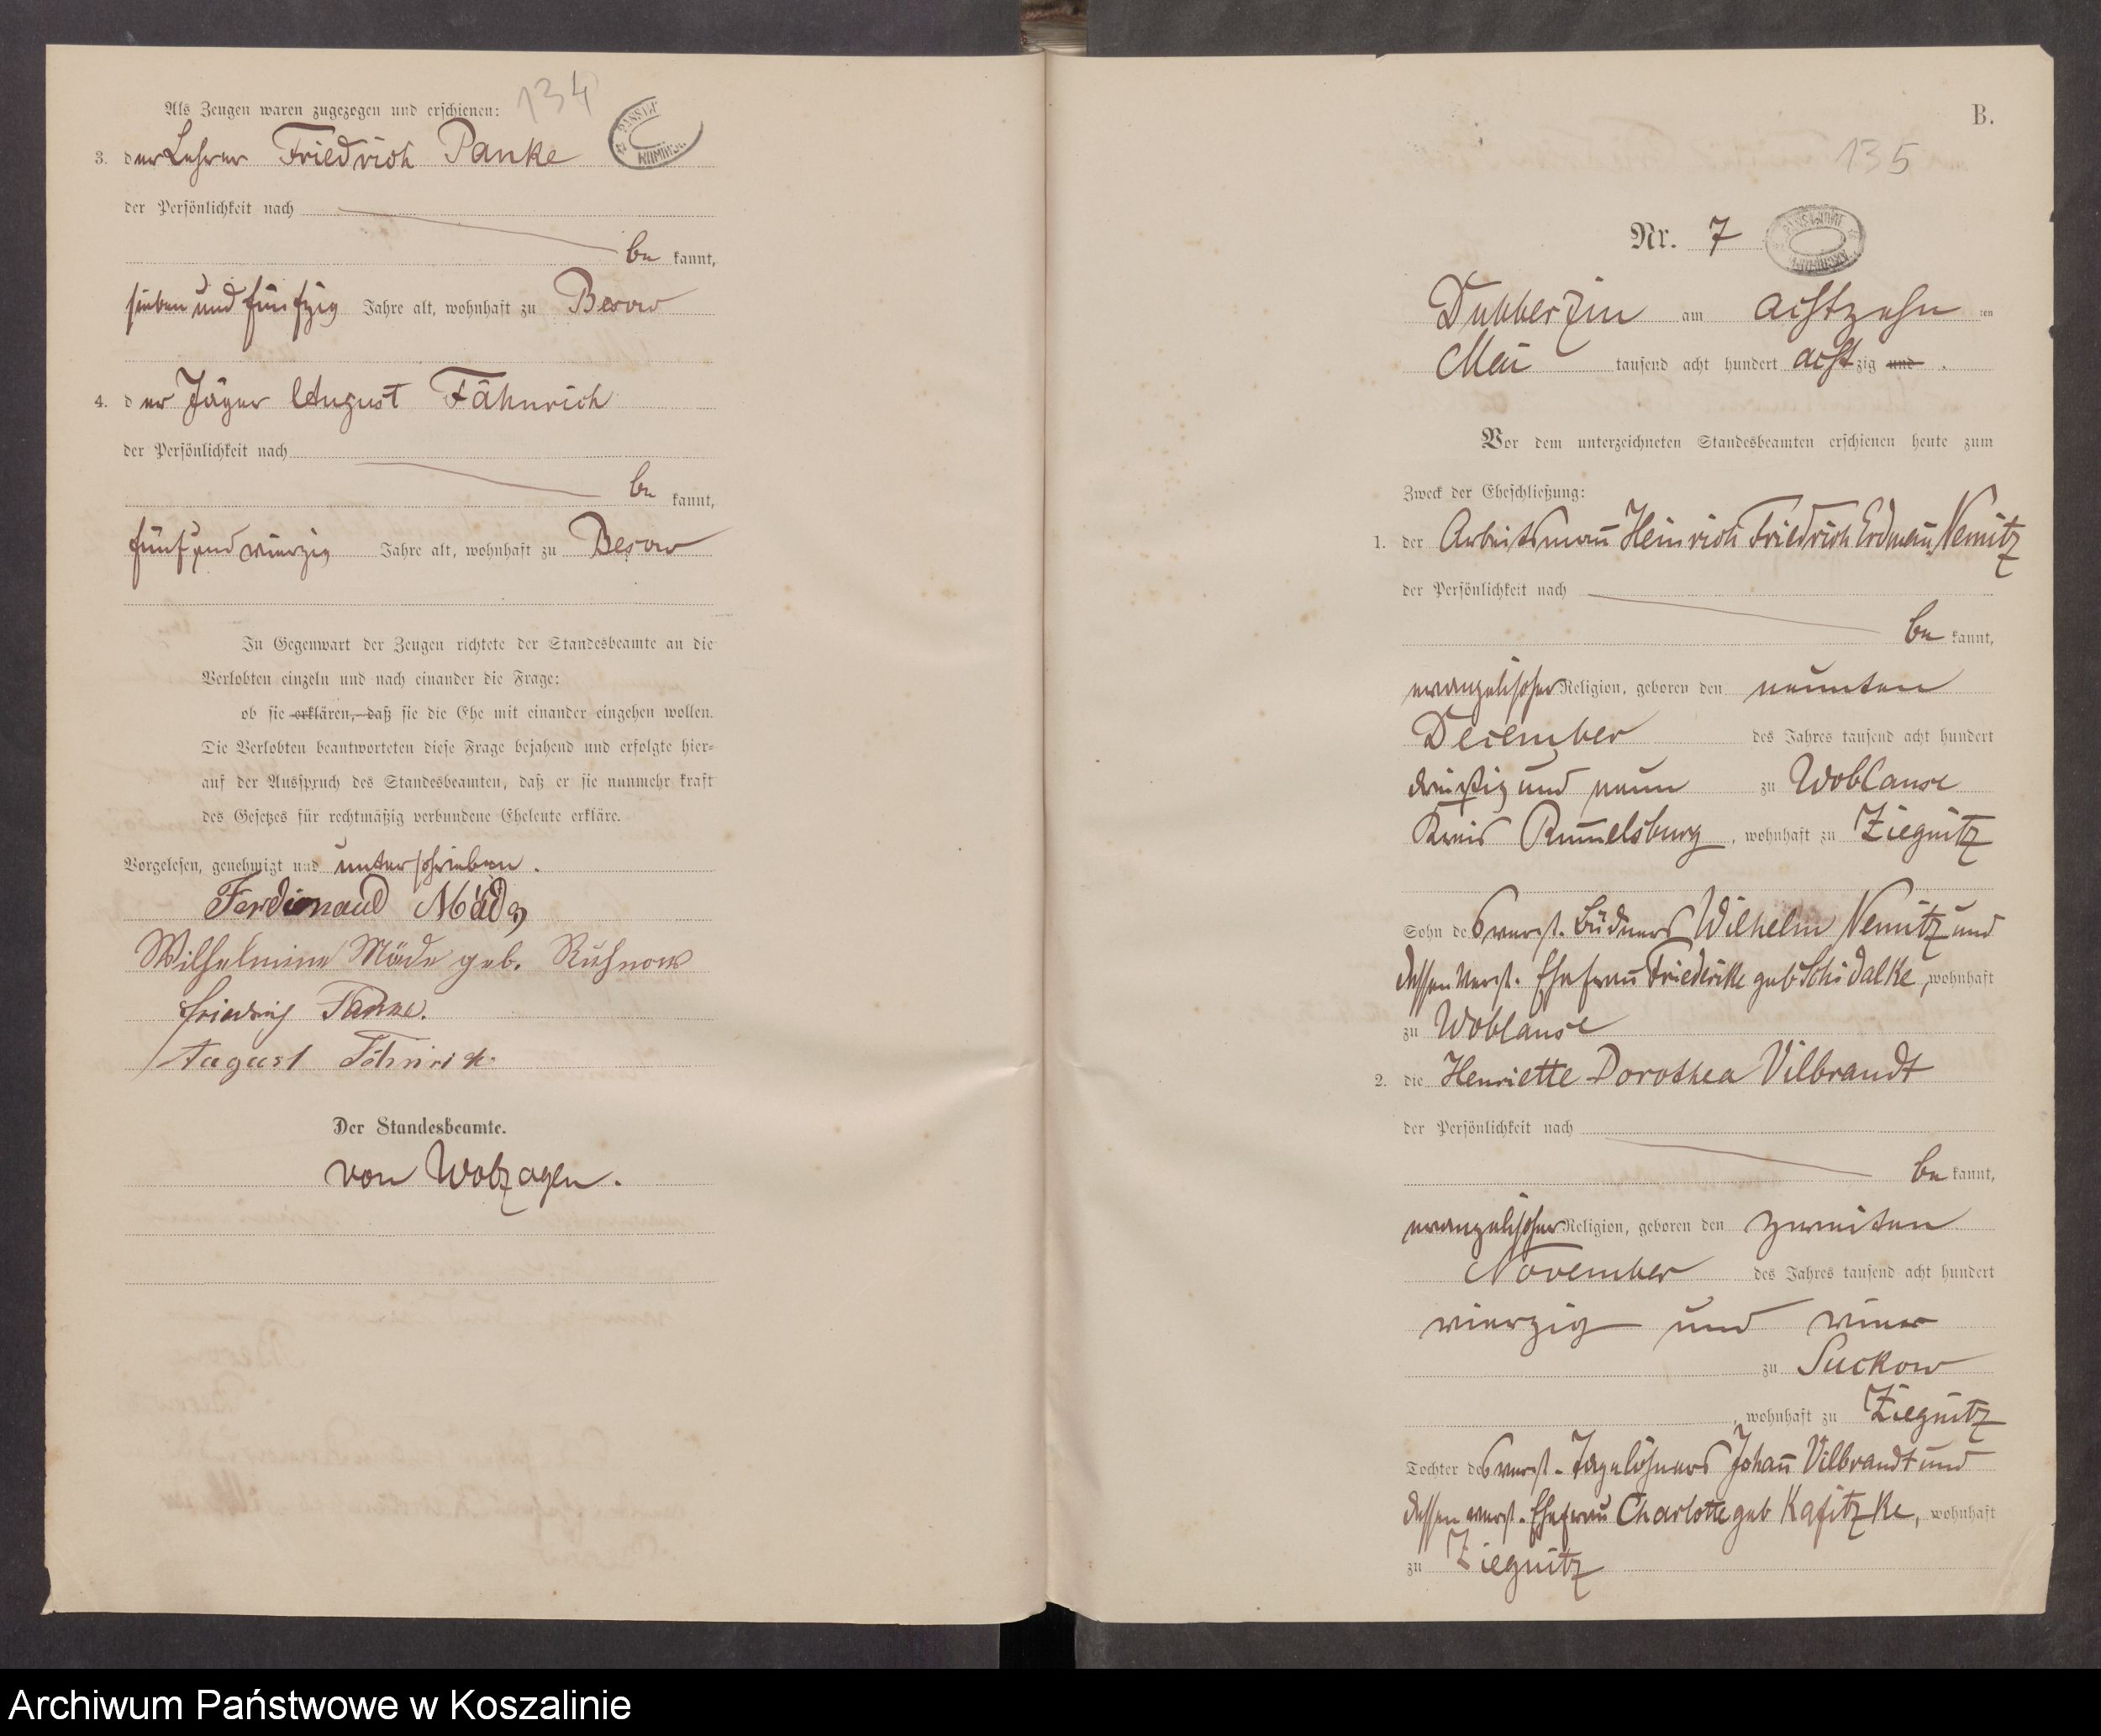 134
Als Zeugen waren zugezogen und erschienen:
3. der Lehrer Friedrich Panke
der Persönlichkeit nach
be kannt,
sieben und fünfzig Jahre alt, wohnhaft zu Besow
4. der Jäger August Fähnrich
der Persönlichkeit nach
be kannt,
fünf und vierzig Jahre alt, wohnhaft zu Besow
In Gegenwart der Zeugen richtete der Standesbeamte an die
Verlobten einzeln und nach einander die Frage:
ob sie erklären, daß sie die Ehe mit einander eingehen wollen.
Die Verlobten beantworteten diese Frage bejahend und erfolgte hier-
auf der Ausspruch des Standesbeamten, daß er sie nunmehr kraft
des Gesetzes für rechtmäßig verbundene Eheleute erkläre.
Vorgelesen, genehmigt und unterschrieben.
Ferdinand
Wilhelmine Mäde geb. Ruhnow
Friedrich Panke.
August Fähnrich
Der Standesbeamte.
von
B.
135
Nr. 7
Dubberzin am achtzehn ten
Mai tausend acht hundert achtzig und.
Vor dem unterzeichneten Standesbeamten erschienen heute zum
Zweck der Eheschließung:
1. der Arbeitsmann Heinrich Friedrich Erdmann Nemitz
der Persönlichkeit nach
be kannt,
evangelischer Religion, geboren den neunten
December des Jahres tausend acht hundert
dreißig und neun zu Woblanse
Kreis Rummelsburg, wohnhaft zu Ziegnitz
Sohn des verst. Büdners Wilhelm Nemitz und
dessen verst. Ehefrau Friederike geb Schidalke, wohnhaft
zu Woblanse
2. die Henriette Dorothea Vilbrandt
der Persönlichkeit nach
be kannt,
evangelischer Religion, geboren den zweiten
November des Jahres tausend acht hundert
vierzig und
zu Suckow
, wohnhaft zu Ziegnitz
Tochter des verst. Tagelöhners Johann Vilbrandt und
dessen verst. Ehefrau Charlotte geb Kafitzke, wohnhaft
zu Ziegnitz
Archiwum Państwowe w Koszalinie